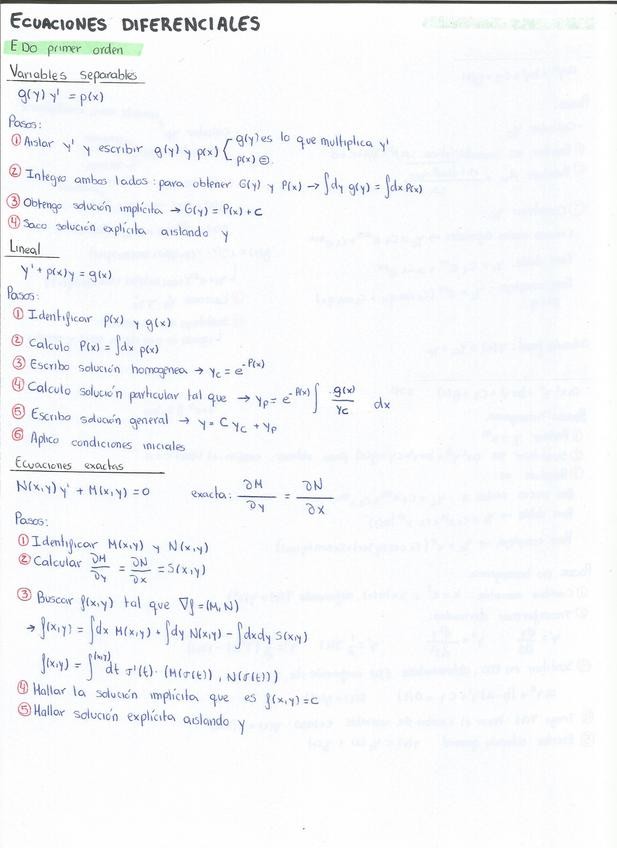 ECUACIONES DIFERENCIALES
EDO primer orden
Variables separables
g(y) y' = p(x)
Pasos:
① Aislar y' y escribir g(y) y p(x) { g(y) es lo que multiplica y'
p(x) ☺.
② Integro ambos lados: para obtener G(y) y P(x) → ∫dy g(y) = ∫dx P(x)
③ Obtengo solución implícita → G(y) = P(x) + C
④ Saco solución explícita aislando y
Lineal
y' + p(x)y = g(x)
Pasos:
① Identificar p(x) y g(x)
② Calculo P(x) = ∫dx p(x)
③ Escribo solución homogenea → yc = e^-P(x)
④ Calculo solución particular tal que → yp = e^-P(x) ∫ g(x)/yc dx
⑤ Escribo solución general → y = C yc + yp
⑥ Aplico condiciones iniciales
Ecuaciones exactas
N(x,y) y' + M(x,y) = 0 exacta: ∂M/∂y = ∂N/∂x
Pasos:
① Identificar M(x,y) y N(x,y)
② Calcular ∂M/∂y = ∂N/∂x = S(x,y)
③ Buscar f(x,y) tal que ∇f = (M,N)
→ f(x,y) = ∫dx M(x,y) + ∫dy N(x,y) - ∫dxdy S(x,y)
f(x,y) = ∫^(x,y) dt σ'(t) · (M(σ(t)), N(σ(t)))
④ Hallar la solución implícita que es f(x,y) = C
⑤ Hallar solución explícita aislando y